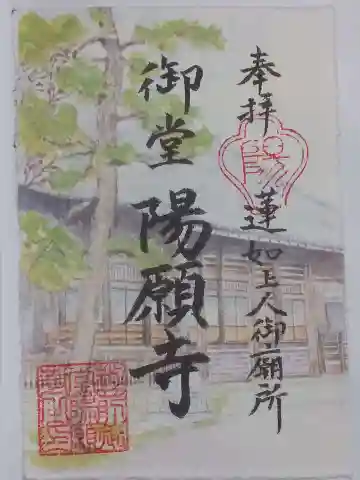 奉拝
陽
蓮如上人御廟所
御堂陽願寺